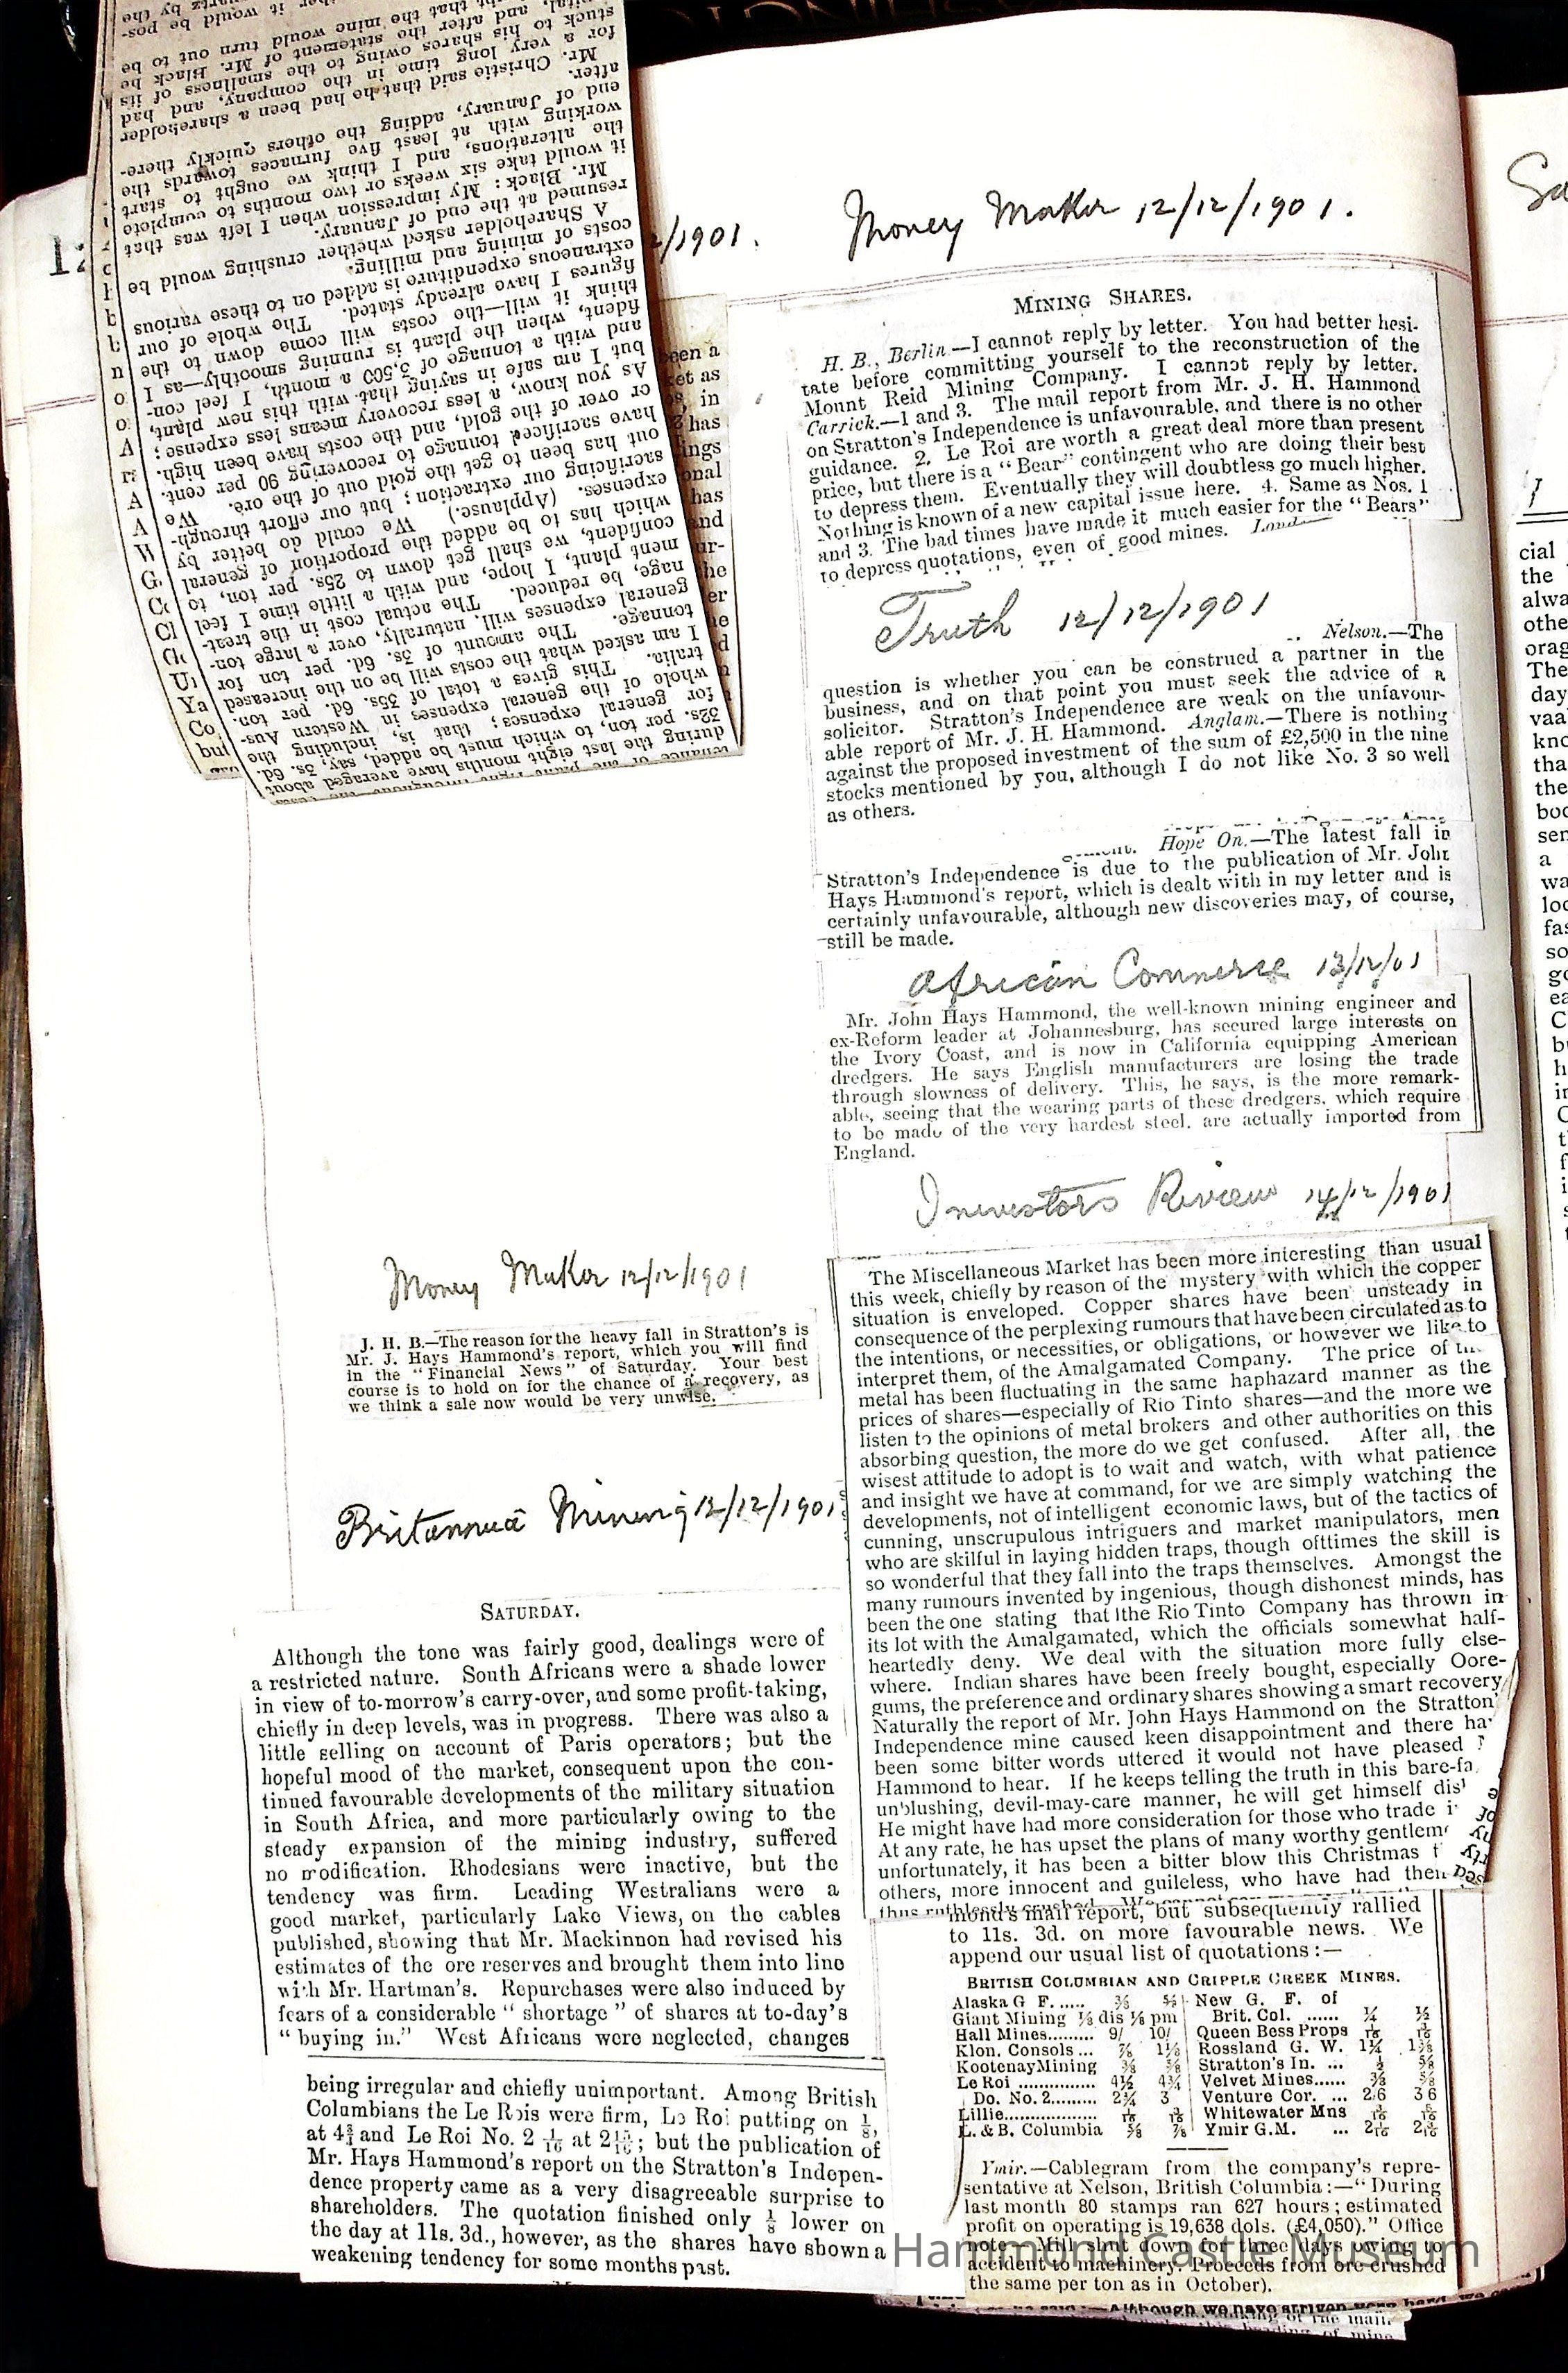 Money Maker 12/12/1901.
MINING SHARES.
H. B., Berlin.—I cannot reply by letter. You had better hesi-
tate before committing yourself to the reconstruction of the
Mount Reid Mining Company. I cannot reply by letter.
Carrick.—1 and 3. The mail report from Mr. J. H. Hammond
on Stratton's Independence is unfavourable, and there is no other
guidance. 2. Le Roi are worth a great deal more than present
price, but there is a "Bear" contingent who are doing their best
to depress them. Eventually they will doubtless go much higher.
Nothing is known of a new capital issue here. 4. Same as Nos. 1
and 3. The bad times have made it much easier for the "Bears"
to depress quotations, even of good mines.
Truth 12/12/1901
Nelson.—The
question is whether you can be construed a partner in the
business, and on that point you must seek the advice of a
solicitor. Stratton's Independence are weak on the unfavour-
able report of Mr. J. H. Hammond. Anglam.—There is nothing
against the proposed investment of the sum of £2,500 in the nine
stocks mentioned by you, although I do not like No. 3 so well
as others.
Hope On.—The latest fall in
Stratton's Independence is due to the publication of Mr. John
Hays Hammond's report, which is dealt with in my letter and is
certainly unfavourable, although new discoveries may, of course,
still be made.
African Commerce 13/12/01
Mr. John Hays Hammond, the well-known mining engineer and
ex-Reform leader at Johannesburg, has secured large interests on
the Ivory Coast, and is now in California equipping American
dredgers. He says English manufacturers are losing the trade
through slowness of delivery. This, he says, is the more remark-
able, seeing that the wearing parts of these dredgers, which require
to be made of the very hardest steel, are actually imported from
England.
Investors Review 14/12/1901
The Miscellaneous Market has been more interesting than usual
this week, chiefly by reason of the mystery with which the copper
situation is enveloped. Copper shares have been unsteady in
consequence of the perplexing rumours that have been circulated as to
the intentions, or necessities, or obligations, or however we like to
interpret them, of the Amalgamated Company. The price of
metal has been fluctuating in the same haphazard manner as the
prices of shares—especially of Rio Tinto shares—and the more we
listen to the opinions of metal brokers and other authorities on this
absorbing question, the more do we get confused. After all, the
wisest attitude to adopt is to wait and watch, with what patience
and insight we have at command, for we are simply watching the
developments, not of intelligent economic laws, but of the tactics of
cunning, unscrupulous intriguers and market manipulators, men
who are skilful in laying hidden traps, though ofttimes the skill is
so wonderful that they fall into the traps themselves. Amongst the
many rumours invented by ingenious, though dishonest minds, has
been the one stating that the Rio Tinto Company has thrown in
its lot with the Amalgamated, which the officials somewhat half-
heartedly deny. We deal with the situation more fully else-
where. Indian shares have been freely bought, especially Oore-
gums, the preference and ordinary shares showing a smart recovery
Naturally the report of Mr. John Hays Hammond on the Stratton'
Independence mine caused keen disappointment and there ha
been some bitter words uttered it would not have pleased
Hammond to hear. If he keeps telling the truth in this bare-fa
unblushing, devil-may-care manner, he will get himself dis
He might have had more consideration for those who trade i
At any rate, he has upset the plans of many worthy gentlem
unfortunately, it has been a bitter blow this Christmas t
others, more innocent and guileless, who have had then
mond's mail report, but subsequently rallied
to 11s. 3d. on more favourable news. We
append our usual list of quotations:—
BRITISH COLUMBIAN AND CRIPPLE CREEK MINES.
Alaska G F..... ⅜ ⅝ New G. F. of
Giant Mining ⅛ dis ⅛ pm Brit. Col. ...... ¼ ½
Hall Mines......... 9/ 10/ Queen Bess Props 1/16 3/16
Klon. Consols ... ⅞ 1⅛ Rossland G. W. 1¼ 1⅜
Kootenay Mining ⅜ ⅝ Stratton's In. ... ½ ⅝
Le Roi ............... 4½ 4¾ Velvet Mines...... ⅜ ⅝
Do. No. 2......... 2¾ 3 Venture Cor. ... 2/6 3 6
Lillie.................. 1/16 3/16 Whitewater Mns 3/16 5/16
L. & B. Columbia ⅝ ⅞ Ymir G.M. ...
Ymir.—Cablegram from the company's repre-
sentative at Nelson, British Columbia:—"During
last month 80 stamps ran 627 hours; estimated
profit on operating is 19,638 dols. (£4,050)." Office
note—Mill shut down for three days owing to
accident to machinery. Proceeds from ore crushed
the same per ton as in October).
Money Maker 12/12/1901
J. H. B.—The reason for the heavy fall in Stratton's is
Mr. J. Hays Hammond's report, which you will find
in the "Financial News" of Saturday. Your best
course is to hold on for the chance of a recovery, as
we think a sale now would be very unwise.
Britannia Mining 12/12/1901
SATURDAY.
Although the tone was fairly good, dealings were of
a restricted nature. South Africans were a shade lower
in view of to-morrow's carry-over, and some profit-taking,
chiefly in deep levels, was in progress. There was also a
little selling on account of Paris operators; but the
hopeful mood of the market, consequent upon the con-
tinued favourable developments of the military situation
in South Africa, and more particularly owing to the
steady expansion of the mining industry, suffered
no modification. Rhodesians were inactive, but the
tendency was firm. Leading Westralians were a
good market, particularly Lake Views, on the cables
published, showing that Mr. Mackinnon had revised his
estimates of the ore reserves and brought them into line
with Mr. Hartman's. Repurchases were also induced by
fears of a considerable "shortage" of shares at to-day's
"buying in." West Africans were neglected, changes
being irregular and chiefly unimportant. Among British
Columbians the Le Rois were firm, Le Roi putting on ⅛,
at 4¾ and Le Roi No. 2 1/16 at 2 15/16; but the publication of
Mr. Hays Hammond's report on the Stratton's Indepen-
dence property came as a very disagreeable surprise to
shareholders. The quotation finished only ⅛ lower on
the day at 11s. 3d., however, as the shares have shown a
weakening tendency for some months past.
during the last eight months have averaged about
32s. per ton, to which must be added, say, 3s. 6d.
for general expenses; that is, including the
whole of the general expenses in Western Aus-
tralia. This gives a total of 35s. 6d. per ton.
I am asked what the costs will be on the increased
tonnage. The amount of 3s. 6d. per ton for
general expenses will, naturally, over a large ton-
nage, be reduced. The actual cost in the treat-
ment plant, I hope, and with a little time I feel
confident, we shall get down to 25s. per ton, to
which has to be added the proportion of general
expenses. (Applause.) We could do better by
sacrificing our extraction; but our effort through-
out has been to get the gold out of the ore. We
have sacrificed tonnage to recovering 90 per cent.
or over of the gold, and the costs have been high.
As you know, a less recovery means less expense;
but I am safe in saying that with this new plant,
and with a tonnage of 3,500 a month, I feel con-
fident, when the plant is running smoothly—as I
think it will—the costs will come down to the
figures I have already stated. The whole of our
extraneous expenditure is added on to these various
costs of mining and milling.
A Shareholder asked whether crushing would be
resumed at the end of January.
Mr. Black: My impression when I left was that
it would take six weeks or two months to complete
the alterations, and I think we ought to start
working with at least five furnaces towards the
end of January, adding the others quickly there-
after.
Mr. Christie said that he had been a shareholder
for a very long time in the company, and had
stuck to his shares owing to the smallness of its
capital, and after the statement of Mr. Black he
Hammond Castle Museum